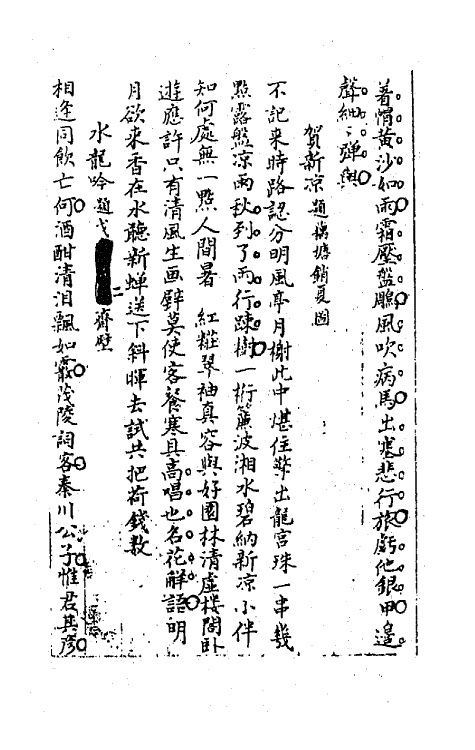 著帽黃沙如雨霜壓盤鵰風吹病馬出塞悲行旅虧他銀甲邊
聲細〻彈與
賀新凉 題橫塘銷夏圖
不記来時路認分明風亭月榭此中堪住擎出龍宮珠一串幾
點露盤凉雨秋到了兩行踈樹一桁簾波湘水碧納新凉小伴
知何處無一點人間暑　紅糚翠袖真容與好園林清虛樓閣卧
遊應許只有清風生画壁莫使客餐寒具高唱也名花解語明
月欲来香在水聽新蝉送下斜暉去試共把荷錢数
水龍吟 題戈 齋壁
相逢同飲亡何酒酣清泪飄如霰茂陵詞客秦川公子惟君其彦